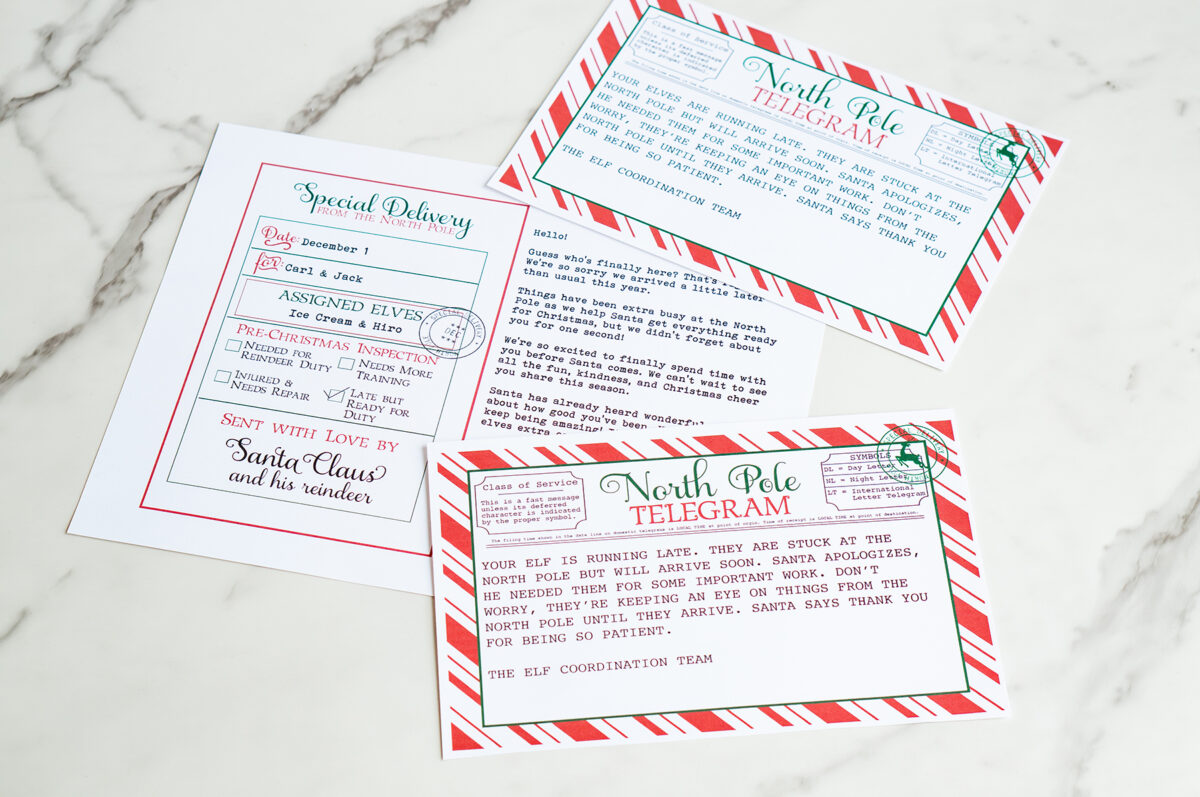 Special Delivery
FROM THE NORTH POLE
Date: December 1
for: Carl & Jack
ASSIGNED ELVES
Ice Cream & Hiro
SPECIAL DELIVERY
DEC
PRE-CHRISTMAS INSPECTION
NEEDED FOR
REINDEER DUTY
NEEDS MORE
TRAINING
INJURED &
NEEDS REPAIR
LATE BUT
READY FOR
DUTY
SENT WITH LOVE BY
Santa Claus
and his reindeer
Hello!
Guess who's finally here? That's
We're so sorry we arrived a little later
than usual this year.
Things have been extra busy at the North
Pole as we help Santa get everything ready
for Christmas, but we didn't forget about
you for one second!
We're so excited to finally spend time with
you before Santa comes. We can't wait to see
all the fun, kindness, and Christmas cheer
you share this season.
Santa has already heard wonderful
about how good you've been.
keep being amazing!
elves extra
Class of Service
This is a fast message
unless its deferred
character is indicated
by the proper symbol.
North Pole
TELEGRAM
SYMBOLS
DL = Day Letter
NL = Night Letter
LT = International
Letter Telegram
The filing time shown in the date line on domestic telegrams is LOCAL TIME at point of origin. Time of receipt is LOCAL TIME at point of destination.
YOUR ELVES ARE RUNNING LATE. THEY ARE STUCK AT THE
NORTH POLE BUT WILL ARRIVE SOON. SANTA APOLOGIZES,
HE NEEDED THEM FOR SOME IMPORTANT WORK. DON'T
WORRY, THEY'RE KEEPING AN EYE ON THINGS FROM THE
NORTH POLE UNTIL THEY ARRIVE. SANTA SAYS THANK YOU
FOR BEING SO PATIENT.
THE ELF COORDINATION TEAM
Class of Service
This is a fast message
unless its deferred
character is indicated
by the proper symbol.
North Pole
TELEGRAM
SYMBOLS
DL = Day Letter
NL = Night Letter
LT = International
Letter Telegram
The filing time shown in the date line on domestic telegrams is LOCAL TIME at point of origin. Time of receipt is LOCAL TIME at point of destination.
YOUR ELF IS RUNNING LATE. THEY ARE STUCK AT THE
NORTH POLE BUT WILL ARRIVE SOON. SANTA APOLOGIZES,
HE NEEDED THEM FOR SOME IMPORTANT WORK. DON'T
WORRY, THEY'RE KEEPING AN EYE ON THINGS FROM THE
NORTH POLE UNTIL THEY ARRIVE. SANTA SAYS THANK YOU
FOR BEING SO PATIENT.
THE ELF COORDINATION TEAM